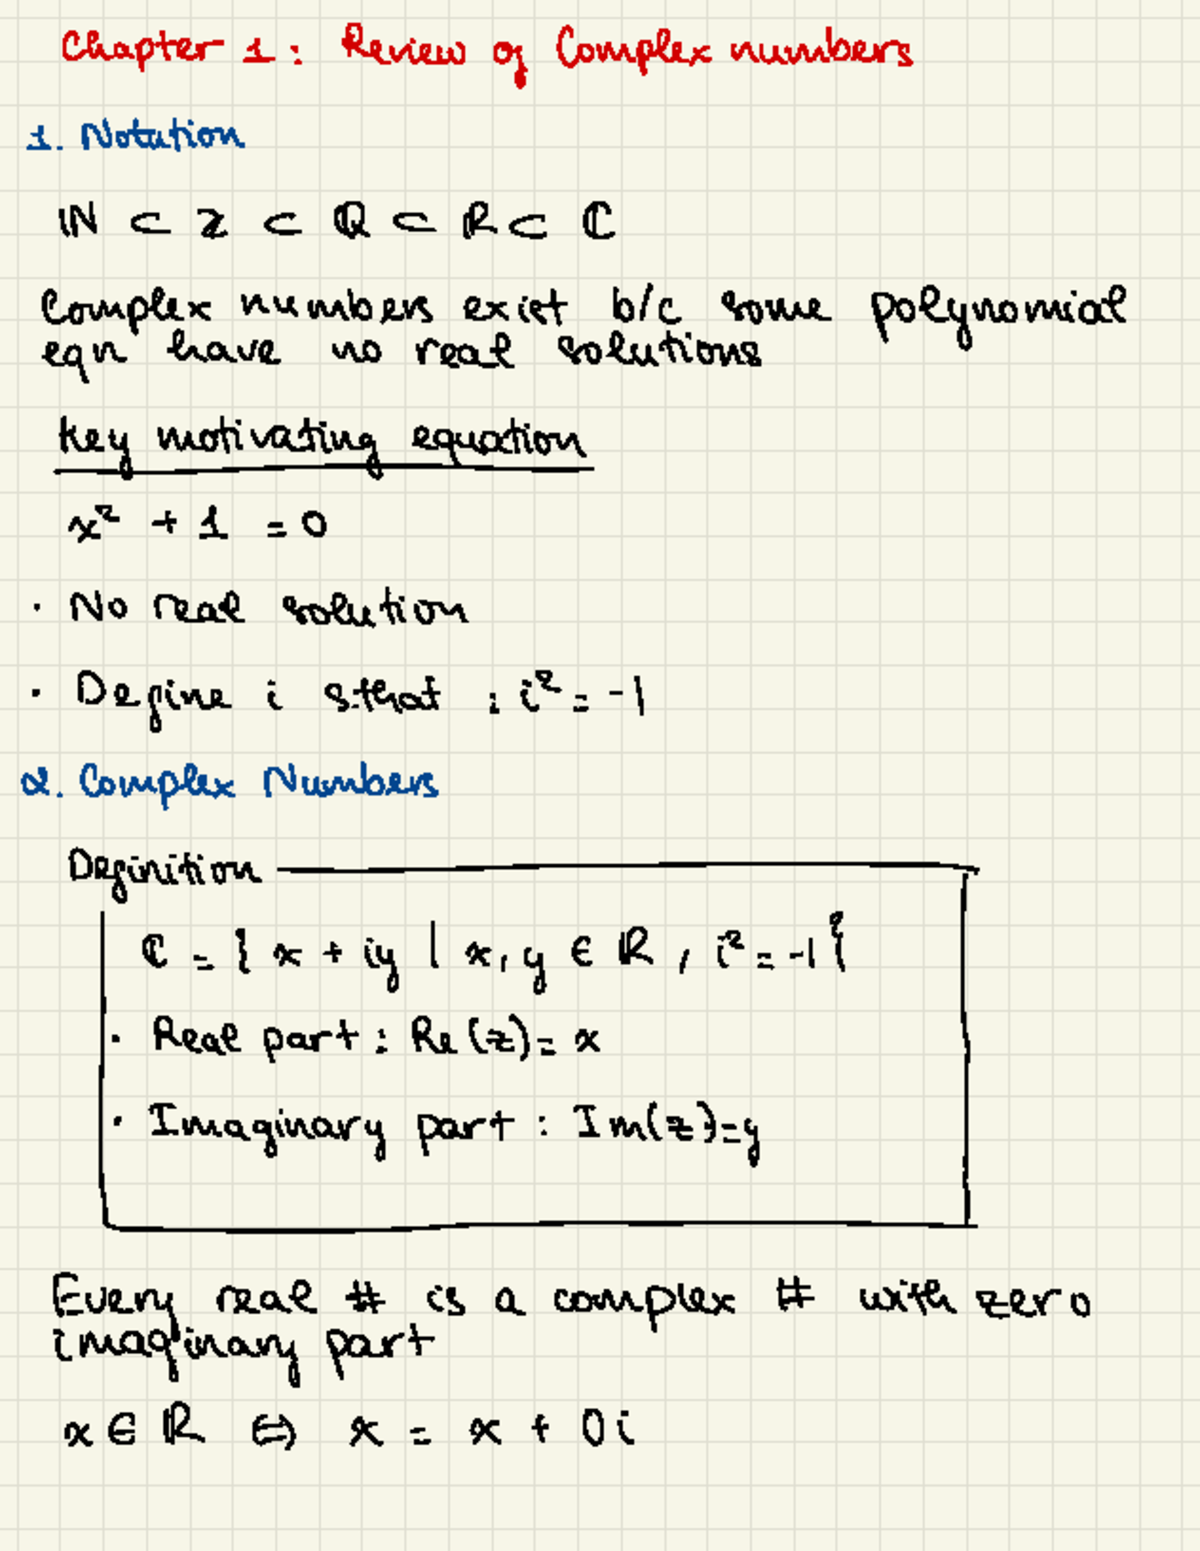 Chapter 1: Review of Complex numbers
1. Notation
ℕ ⊂ ℤ ⊂ ℚ ⊂ ℝ ⊂ ℂ
Complex numbers exist b/c some polynomial
eqn have no real solutions
key motivating equation
x² + 1 = 0
· No real solution
· Define i s.that : i² = -1
2. Complex Numbers
Definition
ℂ = { x + iy | x, y ∈ ℝ, i² = -1 }
· Real part : Re(z) = x
· Imaginary part : Im(z) = y
Every real # is a complex # with zero
imaginary part
x ∈ ℝ ⇔ x = x + 0i